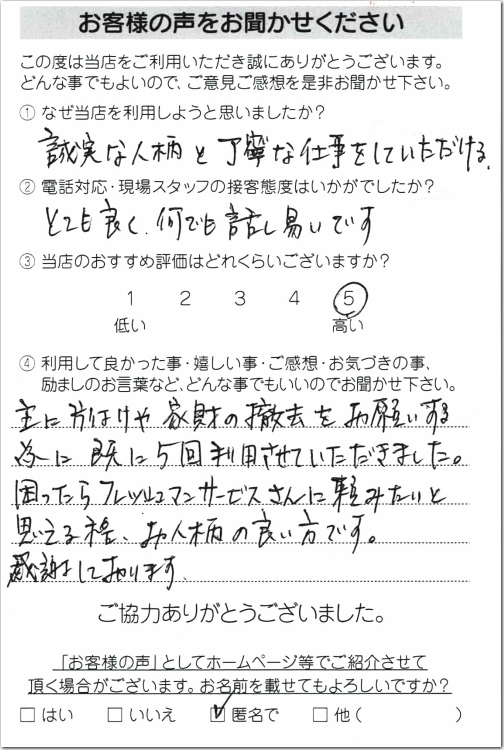 お客様の声をお聞かせください
この度は当店をご利用いただき誠にありがとうございます。
どんな事でもよいので、ご意見ご感想を是非お聞かせ下さい。
① なぜ当店を利用しようと思いましたか?
誠実な人柄と丁寧な仕事をしていただける。
② 電話対応・現場スタッフの接客態度はいかがでしたか?
とても良く、何でも話し易いです
③ 当店のおすすめ評価はどれくらいございますか?
1 2 3 4 5
低い 高い
④ 利用して良かった事・嬉しい事・ご感想・お気づきの事、
励ましのお言葉など、どんな事でもいいのでお聞かせ下さい。
主に片付けや家財の撤去をお願いする
為に既に5回利用させていただきました。
困ったらフレッシュマンサービスさんに頼みたいと
思える程、お人柄の良い方です。
感謝しております。
ご協力ありがとうございました。
「お客様の声」としてホームページ等でご紹介させて
頂く場合がございます。お名前を載せてもよろしいですか?
□ はい □ いいえ ☑ 匿名で □ 他( )